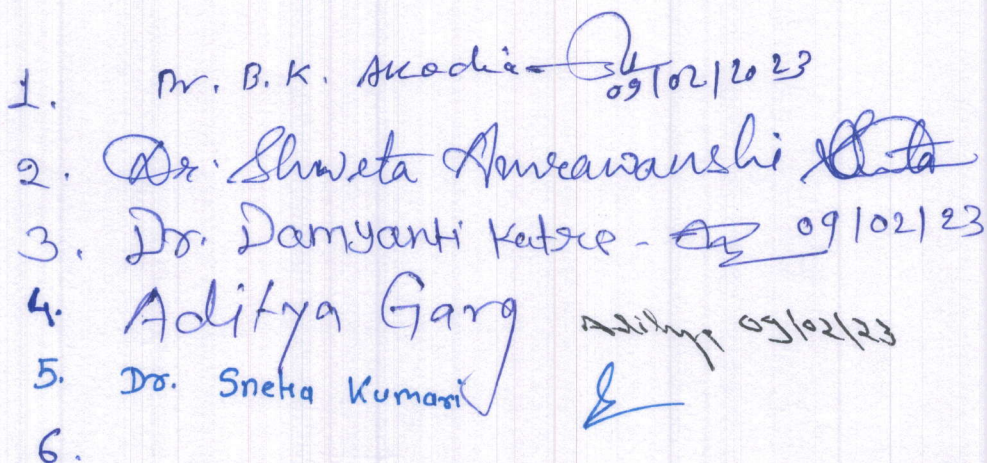 1. Dr. B.K. Akodia - 09/02/2023
2. Dr. Shweta Amrawanshi
3. Dr. Damyanti Katre - 09/02/23
4. Aditya Garg Aditya 09/02/23
5. Dr. Sneha Kumari
6.